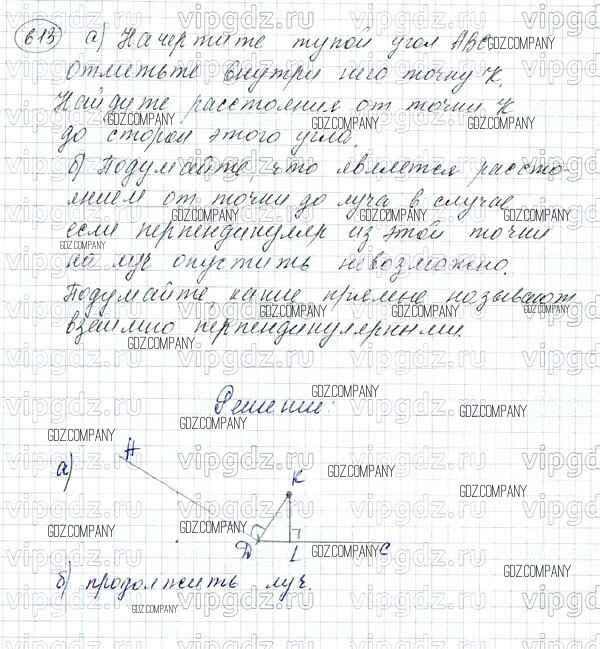 613 а) Начертите тупой угол АВС
отметьте внутри него точку К.
Найдите расстояния от точки К
до сторон этого угла.
б) Подумайте что является рассто-
янием от точки до луча в случае,
если перпендикуляр из этой точки
на луч опустить невозможно.
Подумайте, какие прямые называют
взаимно перпендикулярными.
Решение:
а)
А
К
Д
L
С
б) продолжить луч.
GDZ.COMPANY
vipgdz.ru